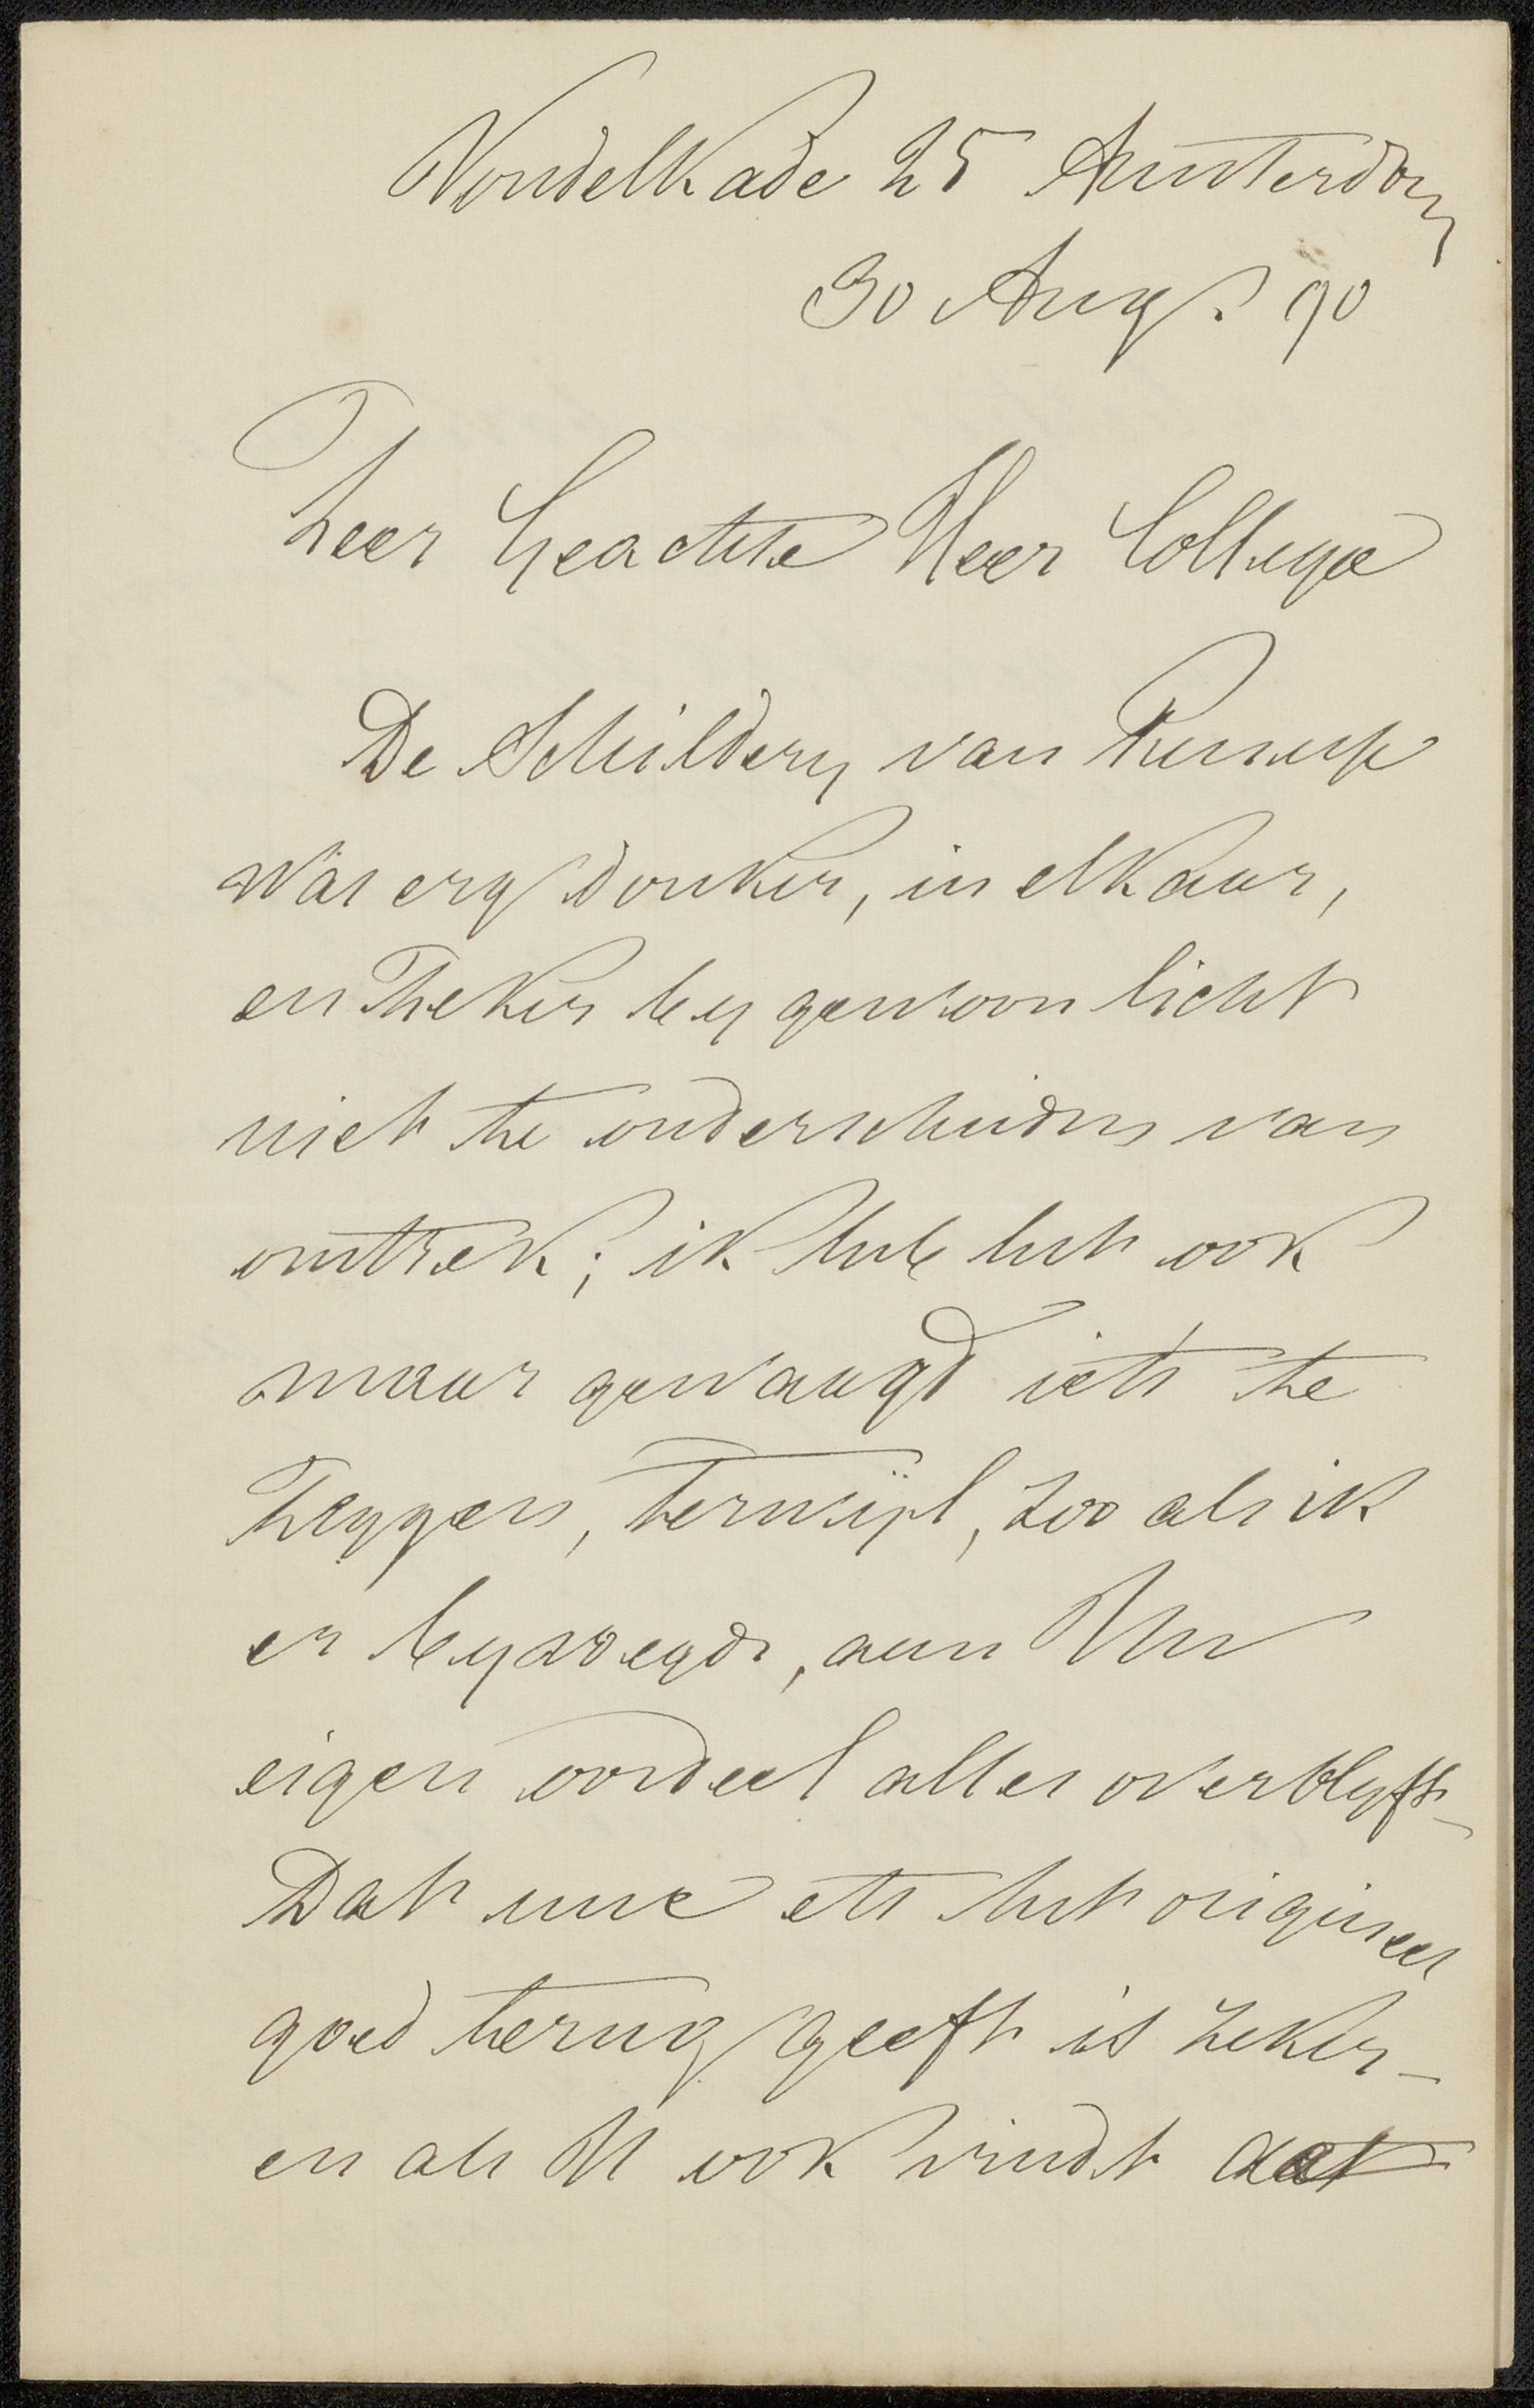 Vondelkade 25 Amsterdam
30 Aug. 90
Zeer Geachte Heer Collega
De Schildery van
was erg donker, in elkaar,
en Zeker by gewoon licht
niet te onderscheiden van
omtrek; ik heb het ook
maar gewaagd iets te
Zeggen, terwijl, zoo als ik
er byvoegde, aan Uw
eigen oordeel alles overblyft
Dat uwe ets het origineel
goed terug geeft is zeker -
en als U ook vindt dat